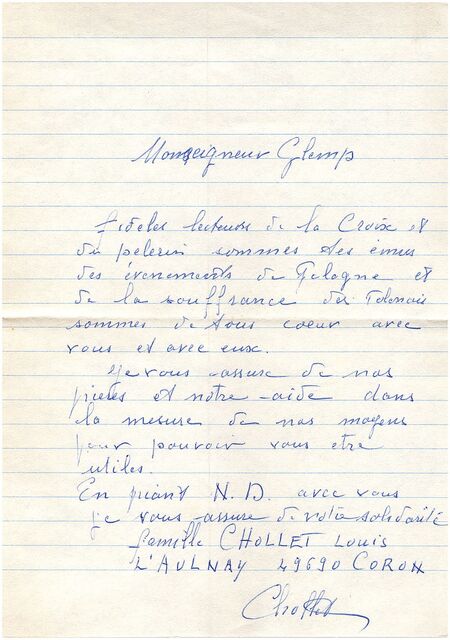 Monseigneur Glemp
fideles lecteurs de la Croix et
du pelerin sommes tes émus
des évenements de Pologne et
de la souffrance des Polonais
sommes de tous coeur avec
vous et avec eux.
Je vous assure de nos
prieres et notre aide dans
la mesure de nos moyens
pour pouvoir vous etre
utiles.
En priant N. D. avec vous
je vous assure de notre solidarité
famille CHOLLET Louis
L'AULNAY 49690 CORON
Chollet